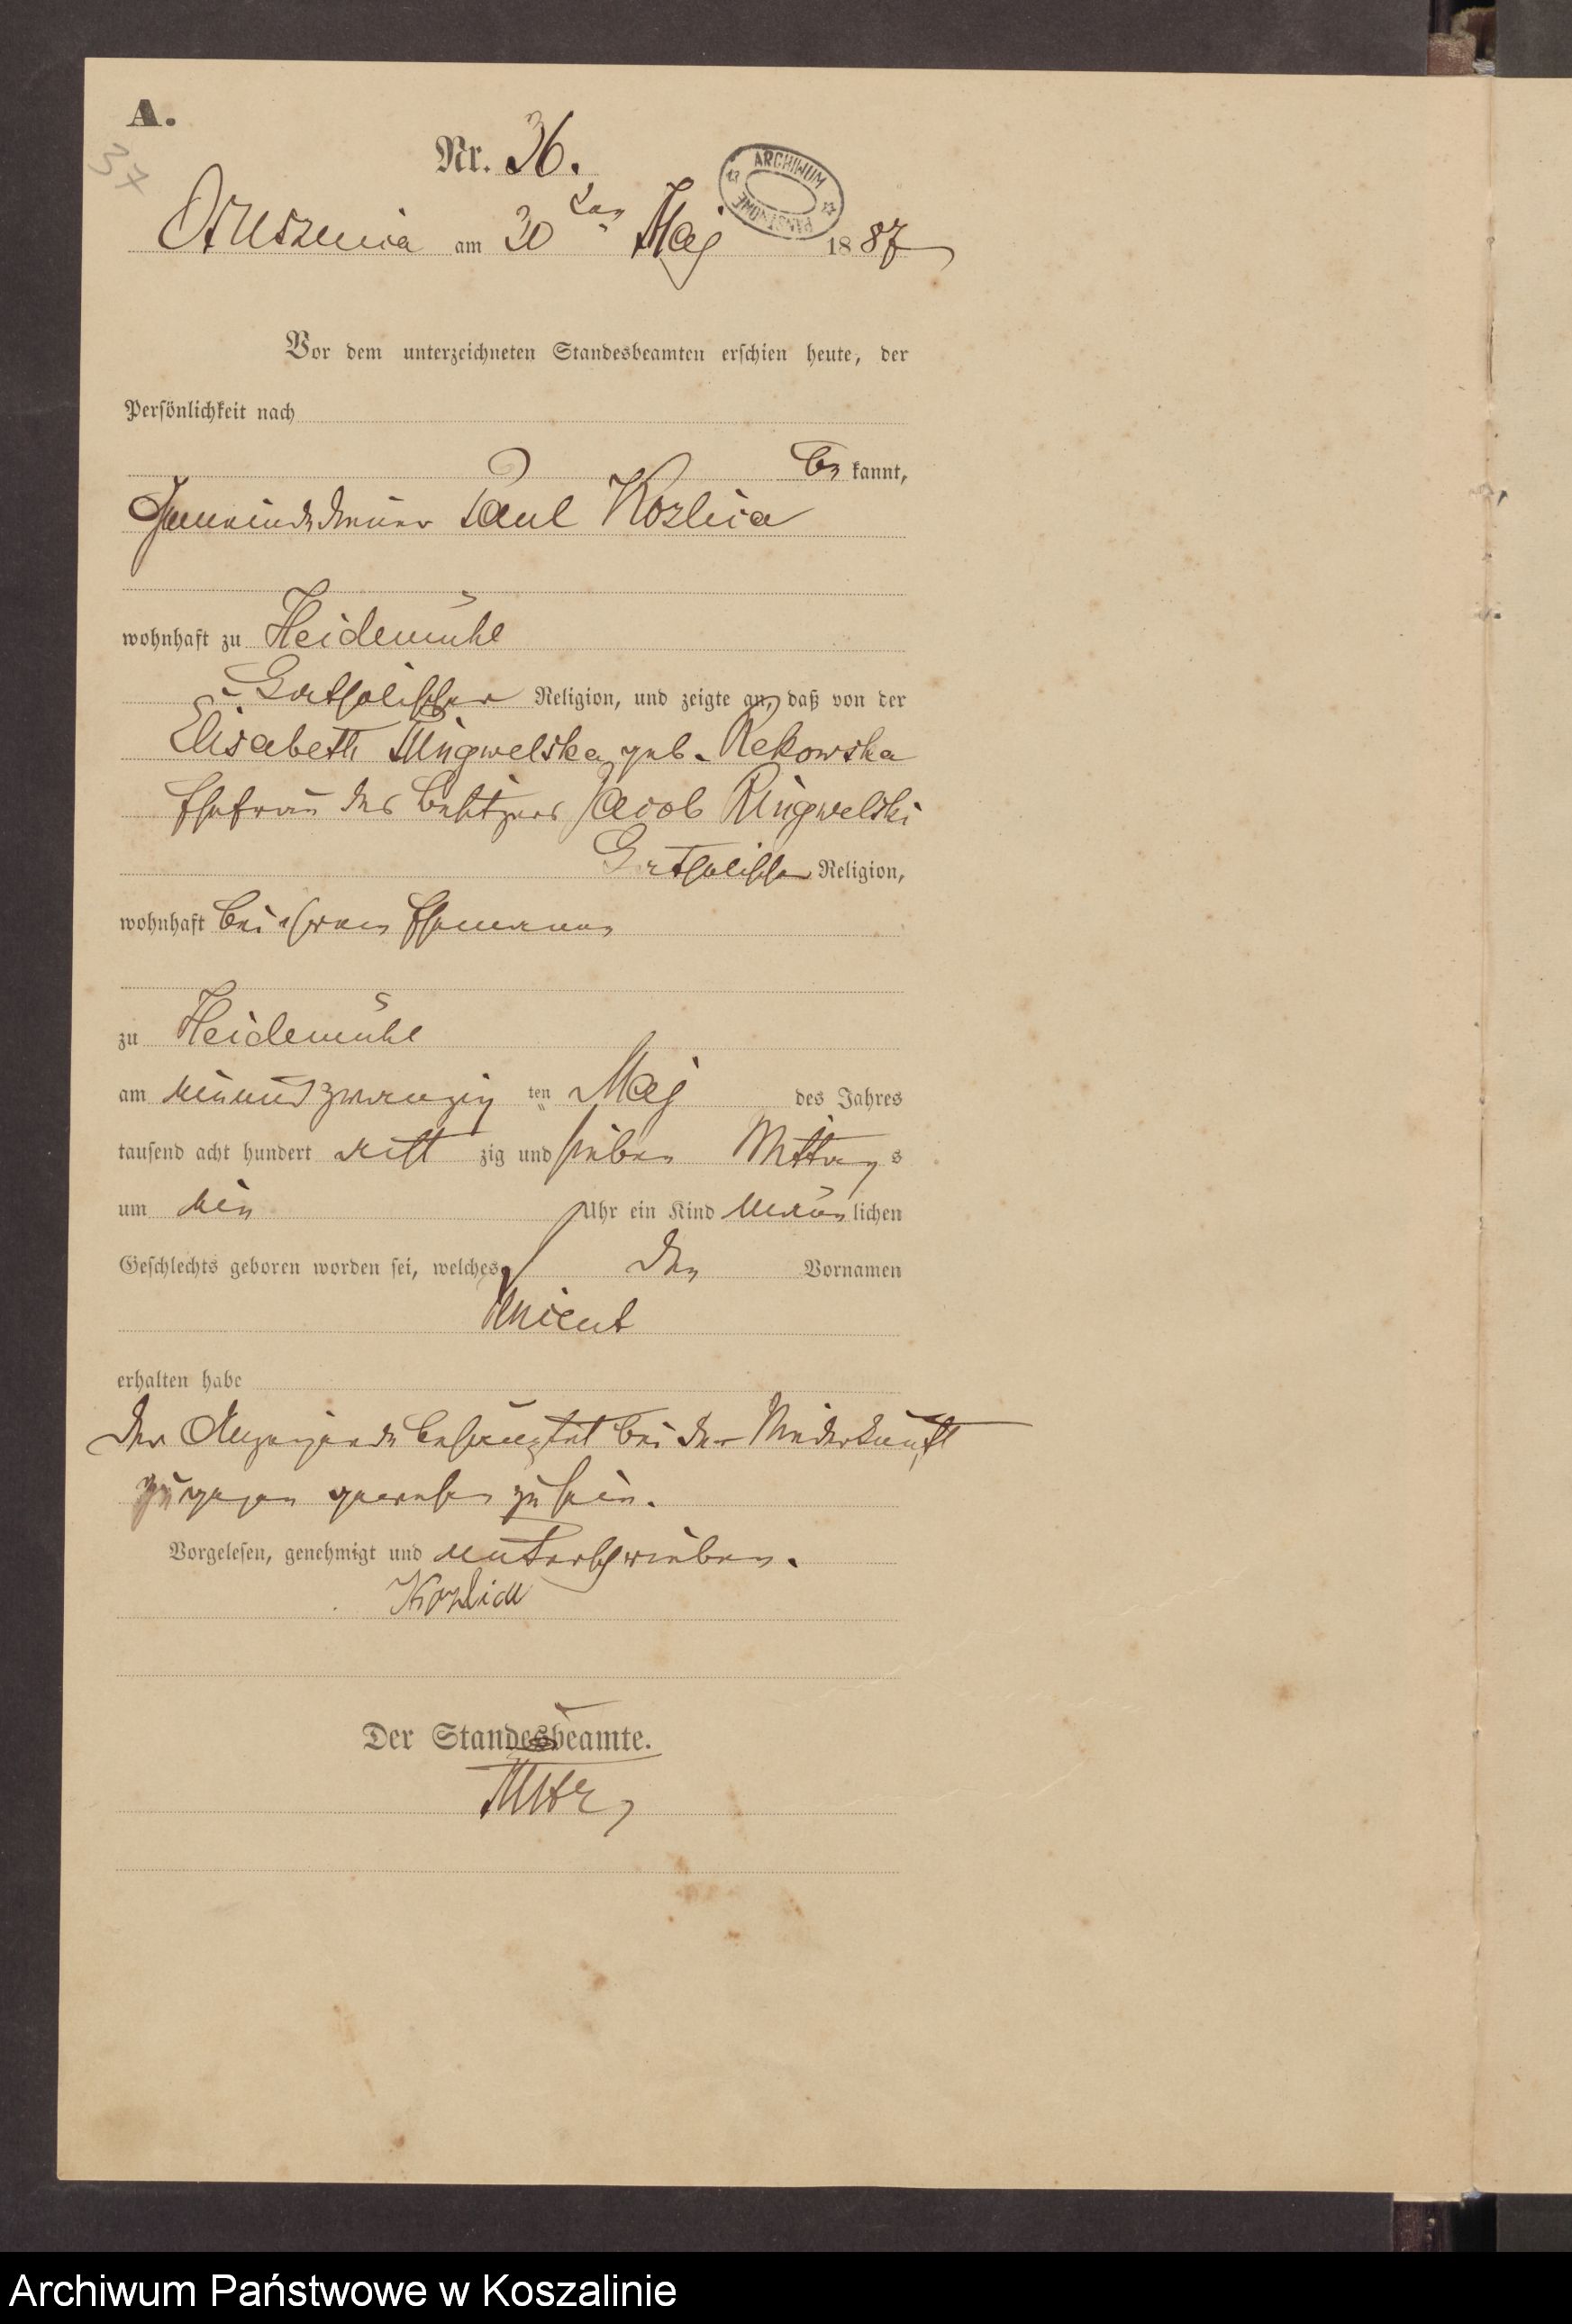 A.
37
Nr. 36.
ARCHIWUM PAŃSTWOWE
am 30ten Maj 1887
Vor dem unterzeichneten Standesbeamten erschien heute, der
Persönlichkeit nach
be kannt,
Paul Kozlica
wohnhaft zu Heidemühl
Catholischer Religion, und zeigte an, daß von der
Elisabeth Ringwelska geb. Rekowska
Ehefrau des Besitzers Jacob Ringwelski
Catholischer Religion,
wohnhaft bei ihrem Ehemann
zu Heidemühl
am neunundzwanzig ten Maj des Jahres
tausend acht hundert acht zig und sieben Mittags
um ein Uhr ein Kind männlichen
Geschlechts geboren worden sei, welches den Vornamen
erhalten habe
Der Anzeigende behauptet bei der Niederkunft
zugegen gewesen zu sein.
Vorgelesen, genehmigt und unterschrieben.
Der Standesbeamte.
Archiwum Państwowe w Koszalinie